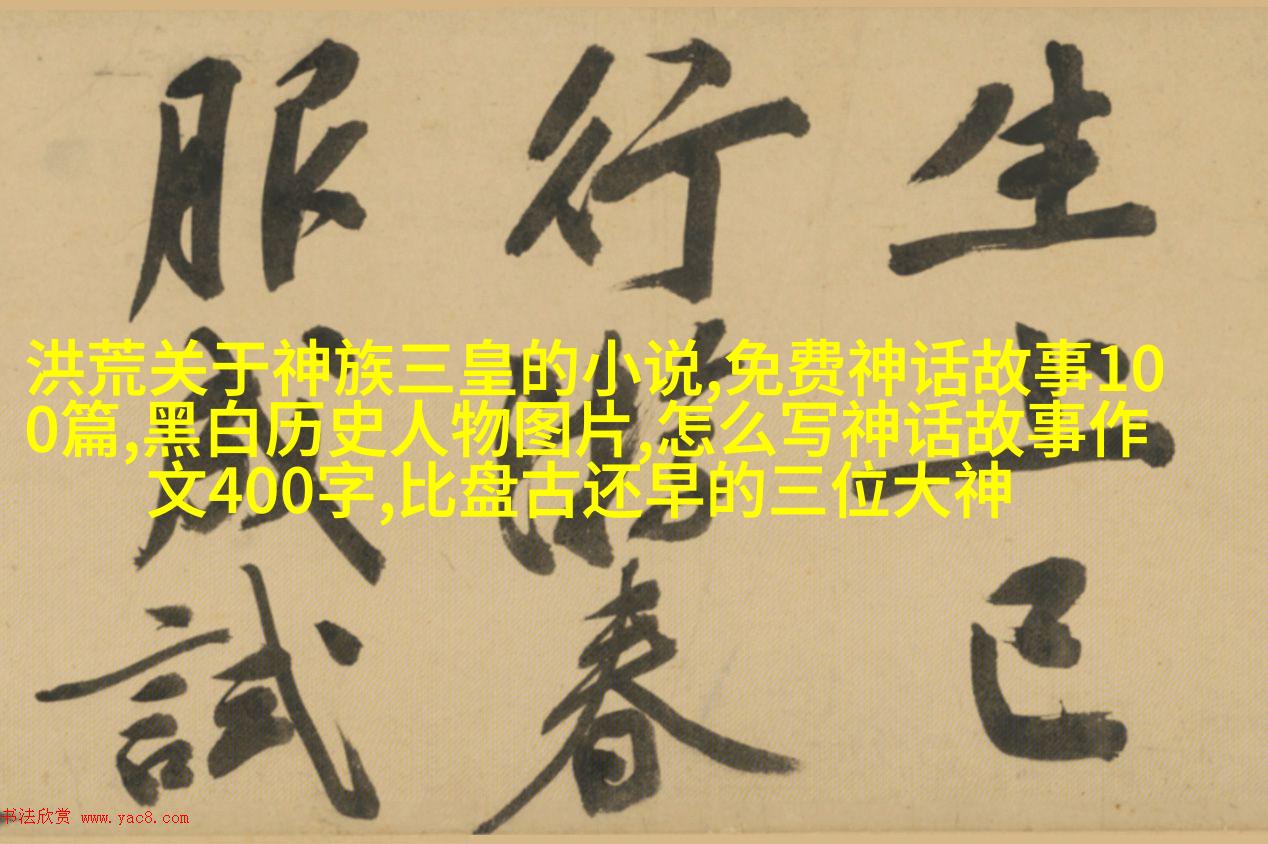 生上巳
行春
服成試
洪荒关于神族三皇的小说,免费神话故事10
0篇,黑白历史人物图片,怎么写神话故事作
文400字,比盘古还早的三位大神
书法欣赏 www.yac8.com